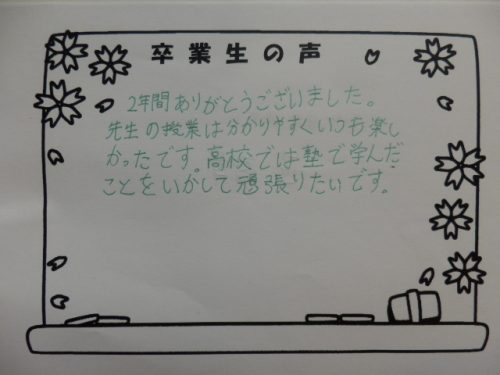 卒業生の声
2年間ありがとうございました。
先生の授業は分かりやすくいつも楽し
かったです。高校では塾で学んだ
ことをいかして頑張りたいです。